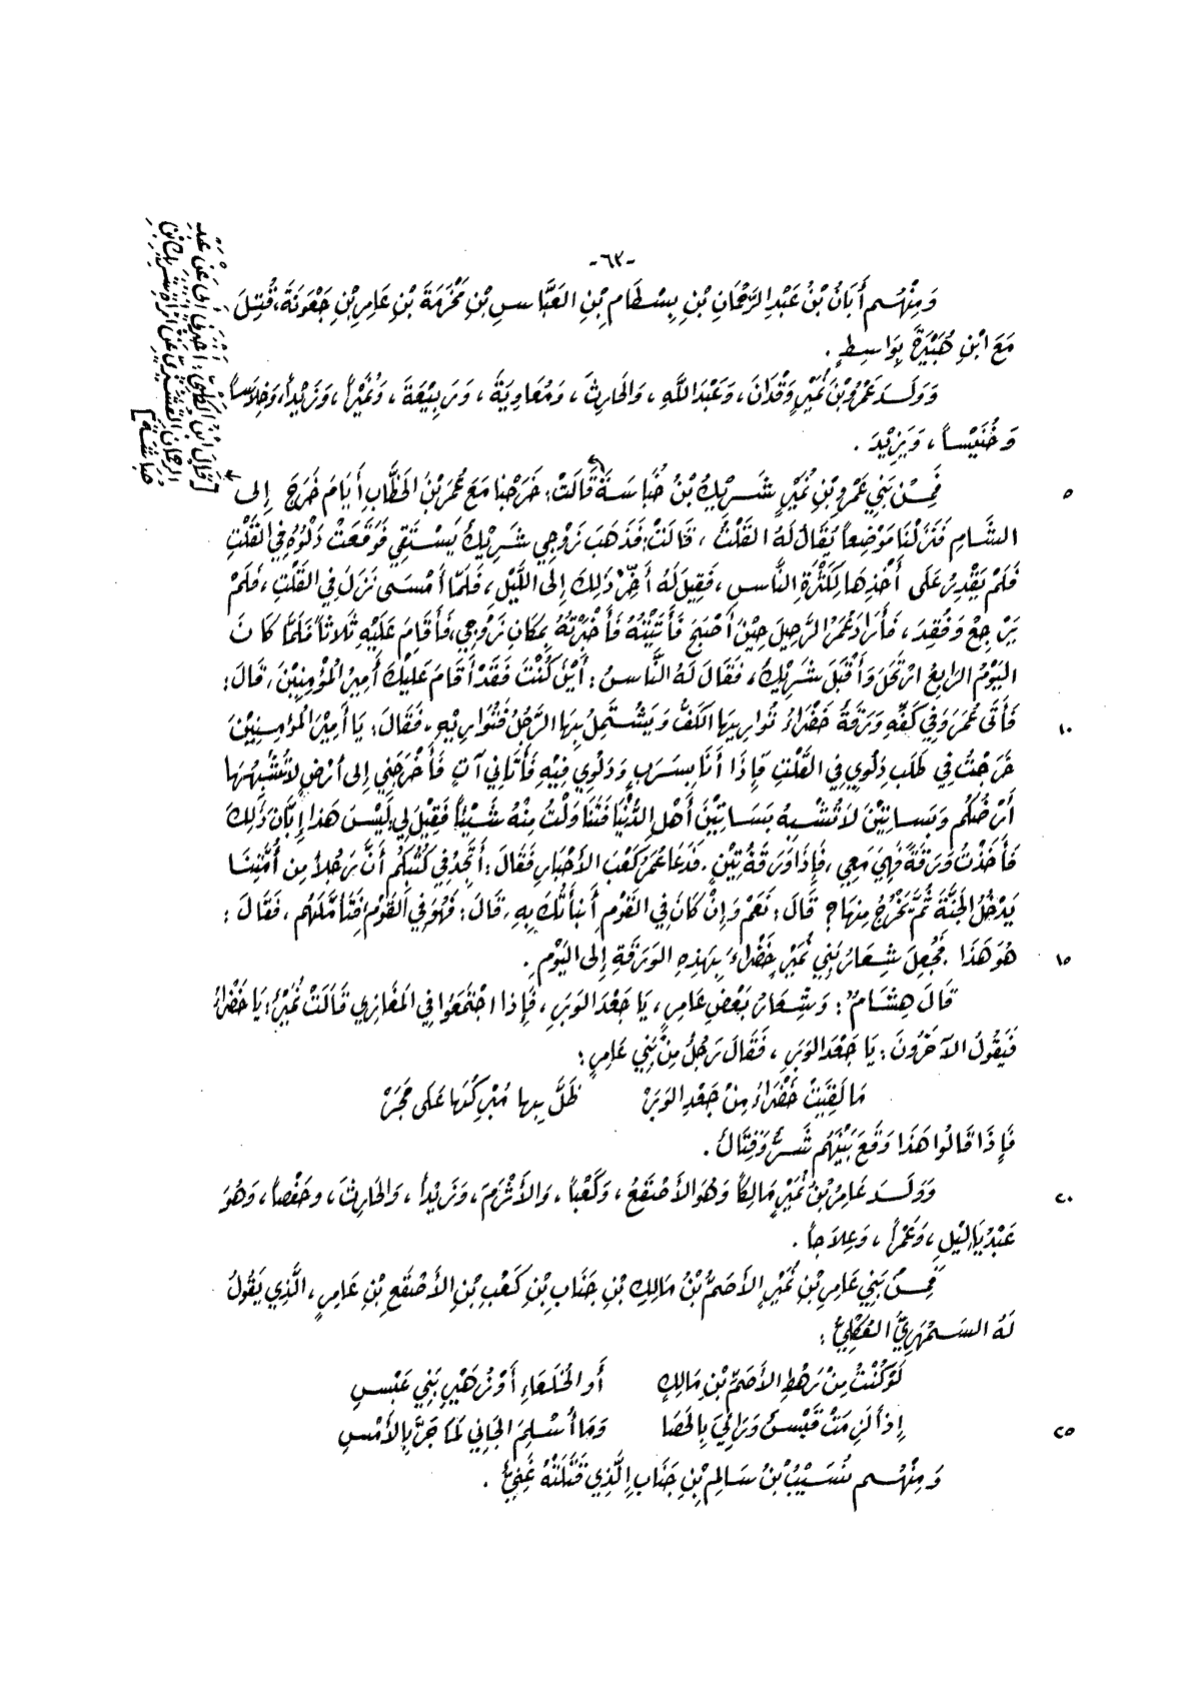 -٦٣-
وَمِنْهُم أَبَانُ بْنُ عَبْدِ الرَّحْمَانِ بْنِ بِسْطَامِ بْنِ العَبَّاسِ بْنِ مَخْرَمَةَ بْنِ عَامِرِ بْنِ جَعْوَنَةَ، قُتِلَ
مَعَ ابْنِ هُبَيْرَةَ بِوَاسِطٍ .
وَوَلَدَ عَمْرُو بْنُ نُمَيْرٍ وَقْدَانَ، وَعَبْدَ اللَّهِ، وَالحَارِثَ، وَمُعَاوِيَةَ، وَرَبِيْعَةَ، وَنُمَيْراً، وَزَيْداً، وَخِلَاساً
وَخُنَيْساً، وَيَزِيْدَ .
فَمِنْ بَنِي عَمْرِو بْنِ نُمَيْرٍ شَرِيْكُ بْنُ خُبَاسَةَ قَالَتْ: خَرَجْنَا مَعَ عُمَرَ بْنِ الخَطَّابِ أَيَامَ خَرَجَ إِلى ٥
الشَّامِ فَنَزَلْنَا مَوْضِعاً يُقَالُ لَهُ القَلْتُ، قَالَتْ: فَذَهَبَ زَوْجِي شَرِيْكُ يَسْتَقِي فَوَقَعَتْ دَلْوُهُ فِي القَلْتِ
فَلَمْ يَقْدِرْ عَلَى أَخْذِهَا لِكَثْرَةِ النَّاسِ، فَقِيلَ لَهُ أَخِّرْ ذَلِكَ إِلى اللَّيْلِ، فَلَمَّا أَمْسَى نَزَلَ فِي القَلْتِ، فَلَمْ
يَرْجِعْ وَفُقِدَ، فَأَرَادَ عُمَرُ الرَّحِيلَ حِيْنَ أَصْبَحَ فَأَتَيْتُهُ فَأَخْبَرْتُهُ بِمَكَانِ زَوْجِي، فَأَقَامَ عَلَيْهِ ثَلاثاً فَلَمَّا كَانَ
اليَوْمُ الرَّابِعُ ارْتَحَلَ وَأَقْبَلَ شَرِيْكُ، فَقَالَ لَهُ النَّاسُ: أَيْنَ كُنْتَ فَقَدْ أَقَامَ عَلَيْكَ أَمِيرُ المُؤْمِنِيْنَ، قَالَ:
فَأَتَى عُمَرَ وَفِي كَفِّهِ وَرَقَةٌ خَضْرَاءُ تُوَارِيهَا الكَفُّ وَيَشْتَمِلُ بِهَا الرَّجُلُ فَتُوَارِيْهِ، فَقَالَ: يَا أَمِيْرَ المُؤْمِنِيْنَ ١٠
خَرَجْتُ فِي طَلَبِ دَلْوِي فِي القَلْتِ فَإِذَا أَنَا بِسَرَبٍ وَدَلْوِي فِيْهِ فَأَتَانِي آتٍ فَأَخْرَجَنِي إِلى أَرْضٍ لاتُشْبِهُهَا
أَرْضُكُم وَبَسَاتِيْنَ لَا تُشْبِهُ بَسَاتِيْنَ أَهْلِ الدُّنْيَا فَتَنَاوَلْتُ مِنْهُ شَيْئاً فَقِيْلَ لِي: لَيْسَ هَذَا إِبَّانَ ذَلِكَ
فَأَخَذْتُ وَرَقَةً فَهِيَ مَعِي، فَإِذَا وَرَقَةُ تِيْنٍ. فَدَعَا عُمَرُ كَعْبَ الأَحْبَارِ فَقَالَ: أَتَجِدُ فِي كُتُبِكُم أَنَّ رَجُلاً مِن أُمَّتِنَا
يَدْخُلُ الجَنَّةَ ثُمَّ يَخْرُجُ مِنهَا؟ قَالَ: نَعَمْ وَإِنْ كَانَ فِي القَوْمِ أَنبَأْتُكَ بِهِ، قَالَ: فَهُوَ فِي القَوْمِ، فَتَأَمَّلَهُم، فَقَالَ:
هُوَ هَذَا. فَجُعِلَ شِعَارُ بَنِي نُمَيْرٍ خَضْرَاءَ بِهَذِهِ الوَرَقَةِ إِلى اليَوْمِ. ١٥
قَالَ هِشَامٌ: وَشِعَارُ بَعْضِ عَامِرٍ، يَا جَعْدَ الوَبَرِ، فَإِذا اجْتَمَعُوا فِي المَغَازِي قَالَتْ نُمَيْرٌ: يَا خَضْرَاءُ
فَيَقُولُ الآخَرُونَ: يَا جَعْدَ الوَبَرِ، فَقَالَ رَجُلٌ مِنْ بَنِي عَامِرٍ:
مَا لَقِيَتْ خَضْرَاءُ مِنْ جَعْدِ الوَبَرْ ظَلَّ بِهَا مُبْرِكُهَا عَلَى حَجَرْ
فَإِذَا قَالُوا هَذَا وَقَعَ بَيْنَهُم شَرٌّ وَقِتَالٌ .
وَوَلَدَ عَامِرُ بْنُ نُمَيْرٍ مَالِكاً وَهُوَ الأَصْقَعُ، وَكَعْباً، وَالأَثْرَمَ، وَزَيْداً، وَالحَارِثَ، وَحَفْصاً، وَهُوَ ٢٠
عَبْدُ يَالِيْلَ، وَعَمْراً، وَعِلَاجاً .
فَمِنْ بَنِي عَامِرِ بْنِ نُمَيْرٍ الأَصَمُّ بْنُ مَالِكِ بْنِ جَنَابِ بْنِ كَعْبِ بْنِ الأَصْقَعِ بْنِ عَامِرٍ، الَّذِي يَقُولُ
لَهُ السَّمْهَرِيُّ العُكْلِيُّ:
لَوْ كُنْتُ مِنْ رَهْطِ الأَصَمِّ بْنِ مَالِكٍ أَو الخُلَعَاءِ أَوْ زُهَيْرِ بَنِي عَبْسِ
إِذاً لَرَمَتْ قَيْسٌ وَرَائِيَ بِالحَصَا وَمَا أُسْلِمَ الجَانِي لِمَا جَرَّ بِالأَمْسِ ٢٥
وَمِنْهُم شَبِيْبُ بْنُ سَالِمِ بْنِ جَنَابٍ الَّذِي قَتَلَتْهُ غَنِيٌّ .
[قَالَ ابْنُ الكَلْبِيِّ: أَخْبَرَنِي أَبِي عَنْ عَبْدِ
الرحمَانِ القُشَيْرِيِّ عَنْ امْرَأَةِ شَرِيكِ بْنِ
خُبَاشَةَ]